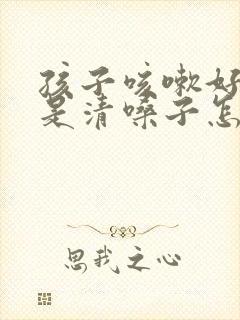 孩子咳嗽好
是清嗓子怎
思我之心